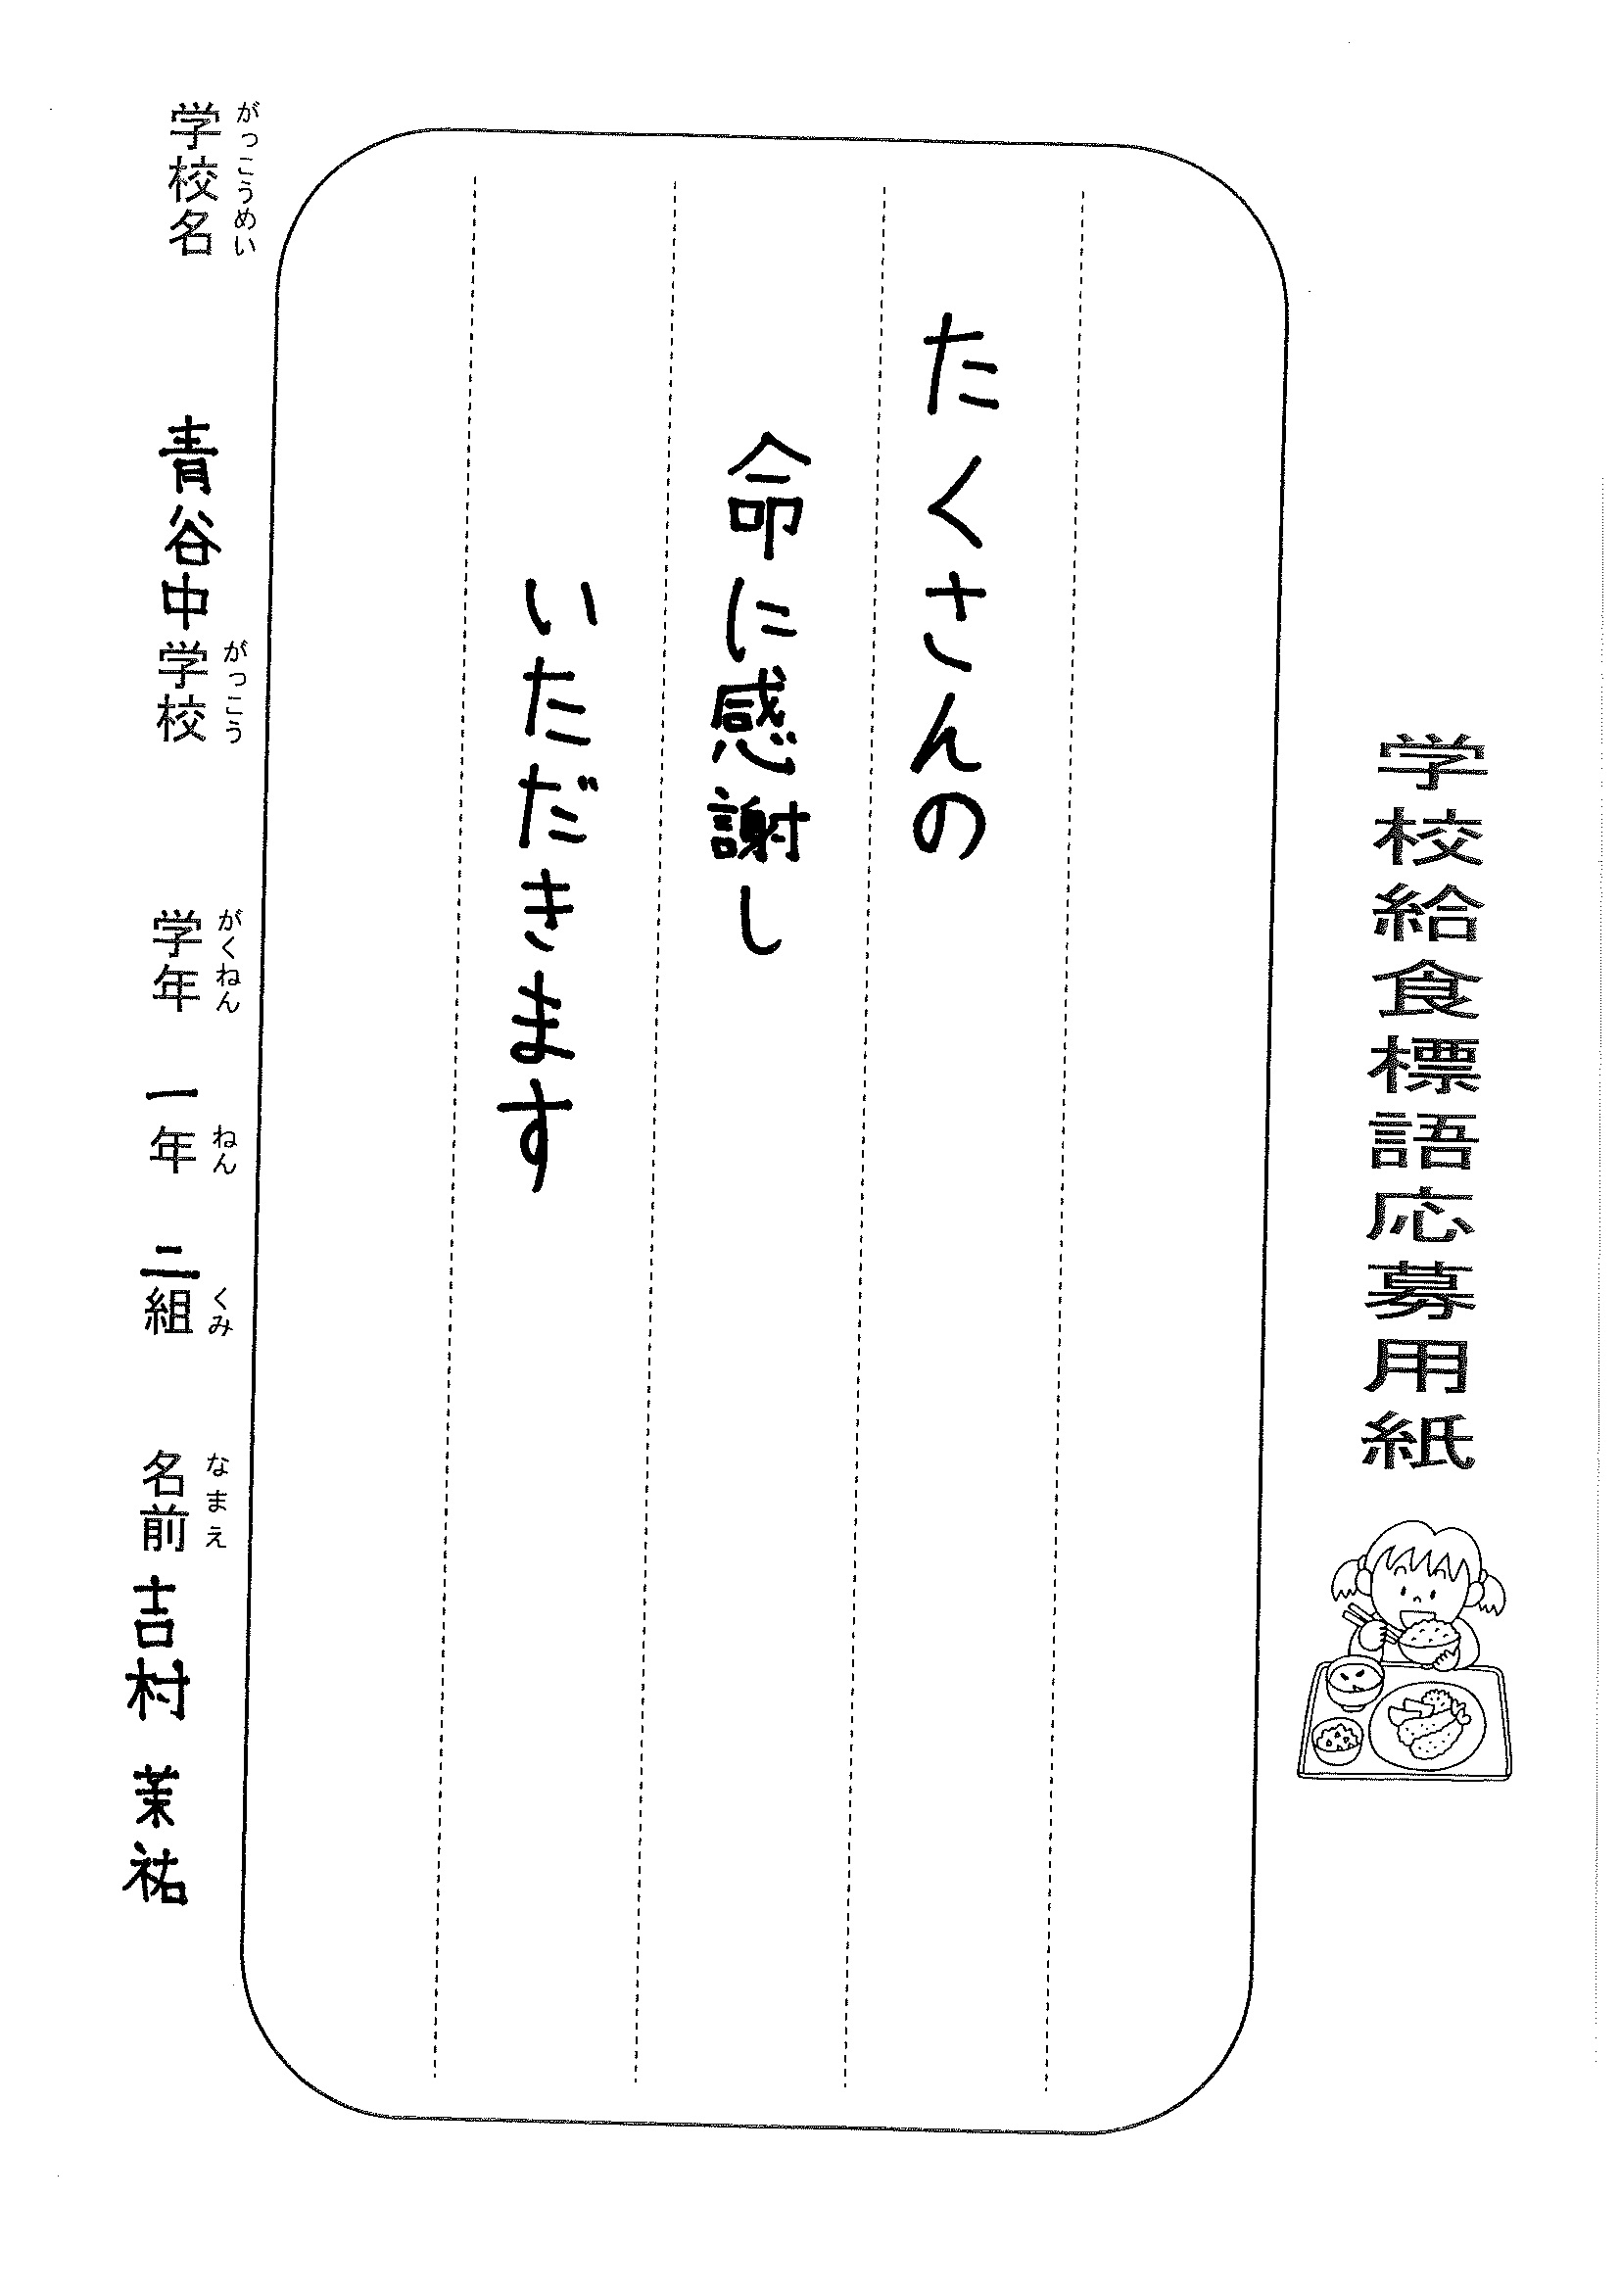 学校給食標語応募用紙
たくさんの
命に感謝し
いただきます
がっこうめい がっこう がくねん ねん くみ なまえ
学校名 青谷中学校 学年 一年 二組 名前 吉村 茉祐